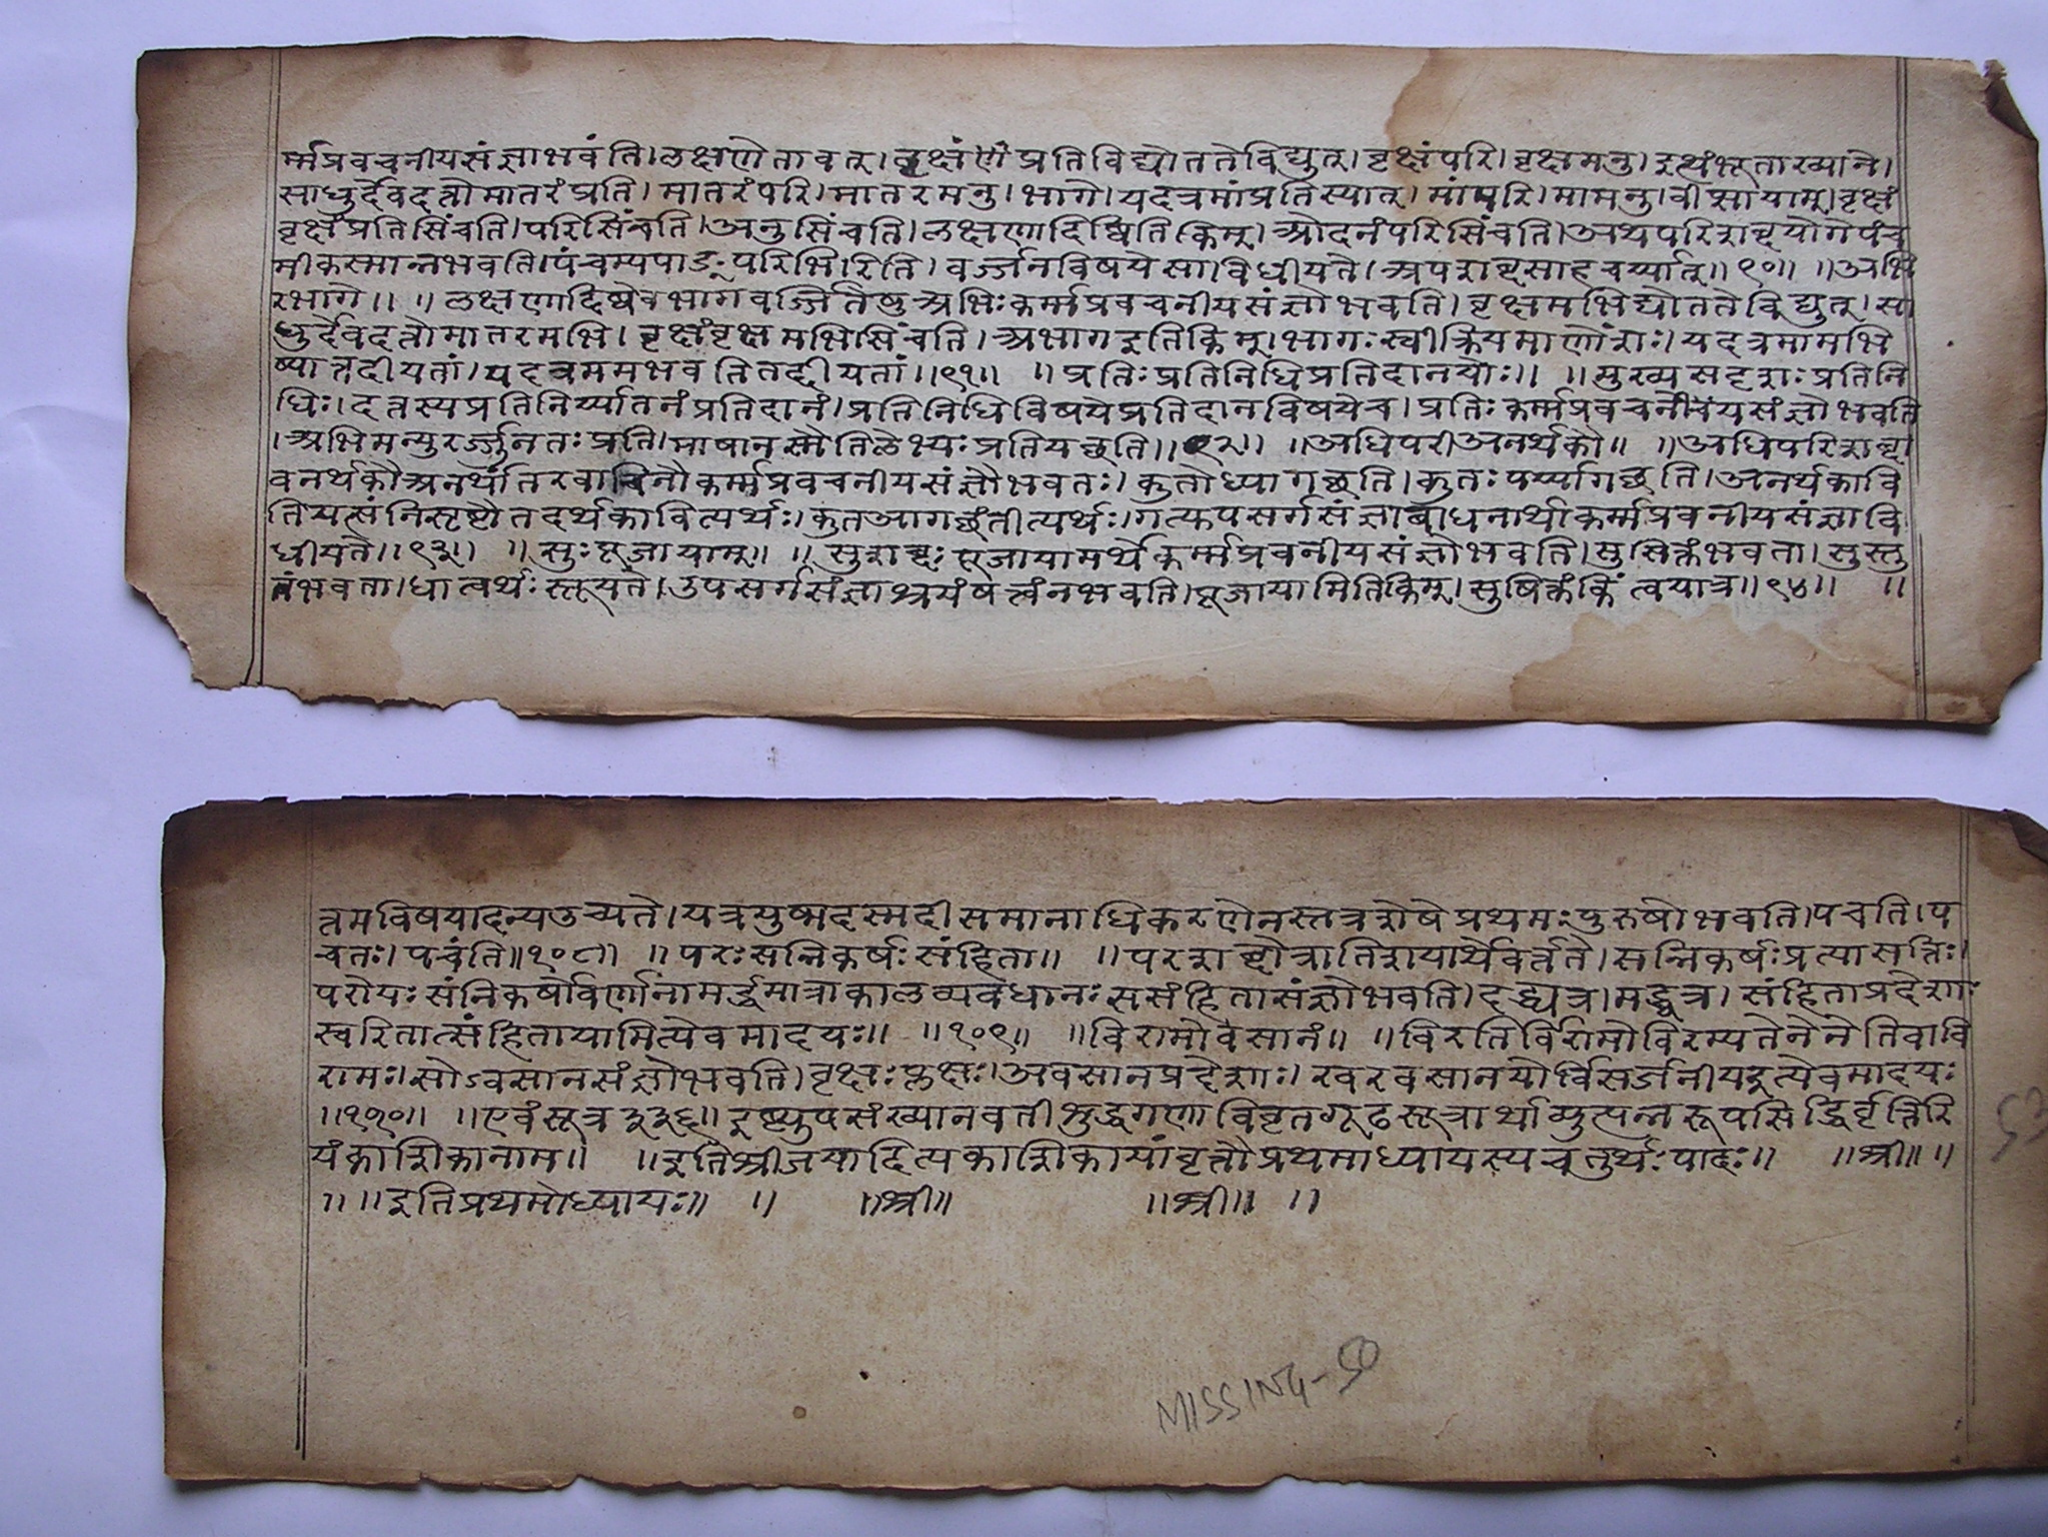 र्म्मप्रवचनीयसंज्ञाभवंति।लक्षणेतावत्।वृक्षंणंप्रतिविद्योततेविद्युत्।वृक्षंपरि।वृक्षमनु।इत्थंभूताख्याने।
साधुर्देवदत्तोमातरंप्रति।मातरंपरि।मातरमनु।भागे।यदत्रमांप्रतिस्यात्।मांपरि।मामनु।वीप्सायाम्।वृक्षं
वृक्षंप्रतिसिंचति।परिसिंचति।अनुसिंचति।लक्षणादिष्वितिकिम्।ओदनंपरिसिंचति।अथपरिशब्दयोगेपंच
मीकस्मान्नभवति।पंचम्यपाङ्ःपरिभिरिति।वर्ज्जनविषयेसाविधीयते।अपशब्दसाहचर्य्यात्॥९०॥ ॥अभि
रभागे॥ ॥लक्षणादिष्वेवभागवर्ज्जितेषुअभिःकर्म्मप्रवचनीयसंज्ञोभवति।वृक्षमभिद्योततेविद्युत्।सा
धुर्देवदत्तोमातरमभि।वृक्षंवृक्षमभिसिंचति।अभागइतिकिम्।भागःस्वीक्रियमाणोंशः।यदत्रमामभि
ष्यात्तद्दीयतां।यदत्रममभवतितद्दीयतां॥९१॥ ॥प्रतिःप्रतिनिधिप्रतिदानयोः॥ ॥मुख्यसदृशःप्रतिनि
धिः।दत्तस्यप्रतिनिर्य्यातनंप्रतिदानं।प्रतिनिधिविषयेप्रतिदानविषयेच।प्रतिःकर्म्मप्रवचनीयसंज्ञोभवति
।अभिमन्युरर्ज्जुनतःप्रति।माषानस्मैतिलेभ्यःप्रतियच्छति॥९२॥ ॥अधिपरीअनर्थकौ॥ ॥अधिपरिशब्दा
वनर्थकौअनर्थांतरवाचिनौकर्म्मप्रवचनीयसंज्ञौभवतः।कुतोध्यागच्छति।कुतःपर्य्यागच्छति।अनर्थकावि
तियत्संनिसृष्टौतदर्थकावित्यर्थः।कुतआगच्छंतीत्यर्थः।गत्फपसर्गसंज्ञाबाधनार्थाकर्म्मप्रवनीयसंज्ञावि
धीयते॥९३॥ ॥सुःपूजायाम्॥ ॥सुशब्दःपूजायामर्थेकर्म्मप्रवचनीयसंज्ञोभवति।सुसिक्तंभवता।सुस्तु
तंभवता।धात्वर्थःस्तूयते।उपसर्गसंज्ञाश्रयंषत्वंनभवति।पूजायामितिकिम्।सुषिक्तंकिंत्वयात्र॥९४॥ ॥
त्तमविषयादन्यउच्यते।यत्रयुष्मदस्मदीसमानाधिकरणेनस्तत्रशेषेप्रथमःपुरुषोभवति।पचति।प
चतः।पचंति॥१०८॥ ॥परःसन्निकर्षःसंहिता॥ ॥परशब्दोत्रातिशयार्थेवर्त्तते।सन्निकर्षःप्रत्यासत्तिः।
परोयःसंनिकर्षोवर्णानामर्द्धमात्राकालव्यवधानःससंहितासंज्ञोभवति।दद्ध्यत्र।मद्ध्वत्र।संहिताप्रदेशाः
स्वरितात्संहितायामित्येवमादयः॥ ॥१०९॥ ॥विरामोवसानं॥ ॥विरतिर्विरामोविरम्यतेनेनेतिवावि
रामः।सोऽवसानसंज्ञोभवति।वृक्षःप्लक्षः।अवसानप्रदेशाः।खरवसानयोर्विसर्जनीयइत्येवमादयः
॥११०॥ ॥एवंसूत्र३३६॥इष्ट्युपसंख्यानवतीशुद्धगणाविवृतगूढसूत्रार्थाव्युत्पन्नरूपसिद्धिर्वृत्तिरि
यंकाशिकानाम॥ ॥इतिश्रीजयादित्यकाशिकायांवृत्तौप्रथमाध्यायस्यचतुर्थःपादः॥ ॥श्री॥ ॥
॥ ॥इतिप्रथमोध्यायः॥ ॥ ॥श्री॥ ॥श्री॥ ॥
53
MISSING-50